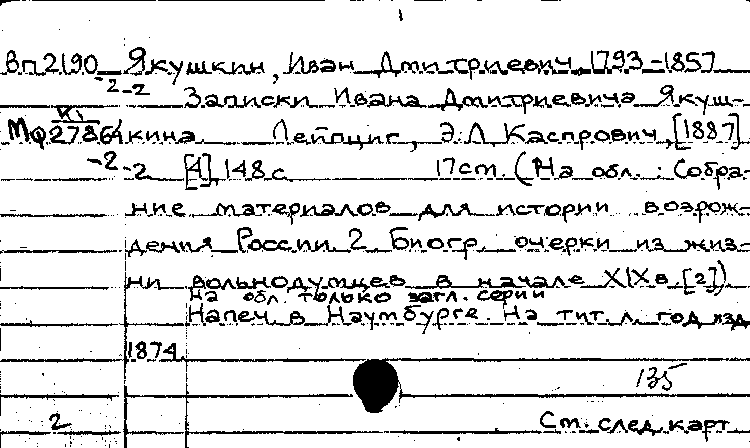 Вп2190 Якушкин, Иван Дмитриевич, 1793-1857
-2-2 Записки Ивана Дмитриевича Якуш-
К1
Мф27864 кина. Лейпциг, Э.Л. Каспрович, [1887]
-2-2 [4], 148 с. 17 см. (На обл.: Собра-
ние материалов для истории возрож-
дения России. 2. Биогр. очерки из жиз-
ни вольнодумцев в начале XIX в. [2])
На обл. только загл. серии
Напеч. в Наумбурге. На тит. л. год изд.
1874.
135
2 См. след. карт